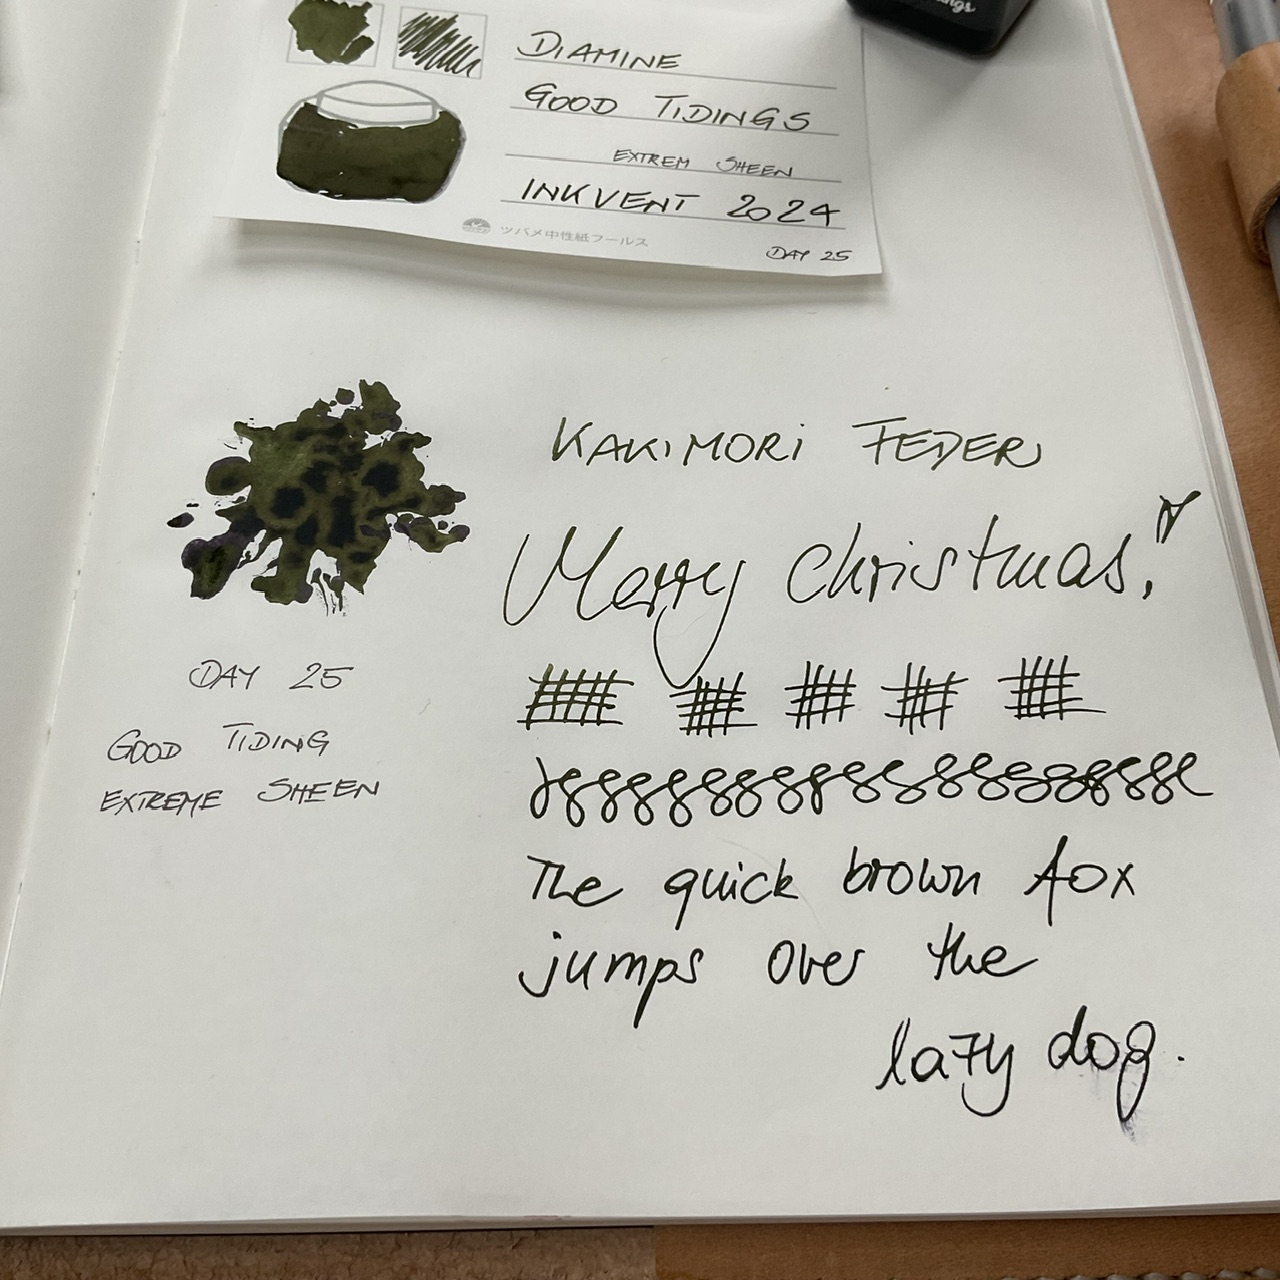 DIAMINE
GOOD TIDINGS
EXTREM SHEEN
INKVENT 2024
ツバメ中性紙フールス
DAY 25
KAKIMORI FEDER
Merry Christmas!
DAY 25
GOOD TIDING
EXTREME SHEEN
The quick brown fox
jumps over the
lazy dog.